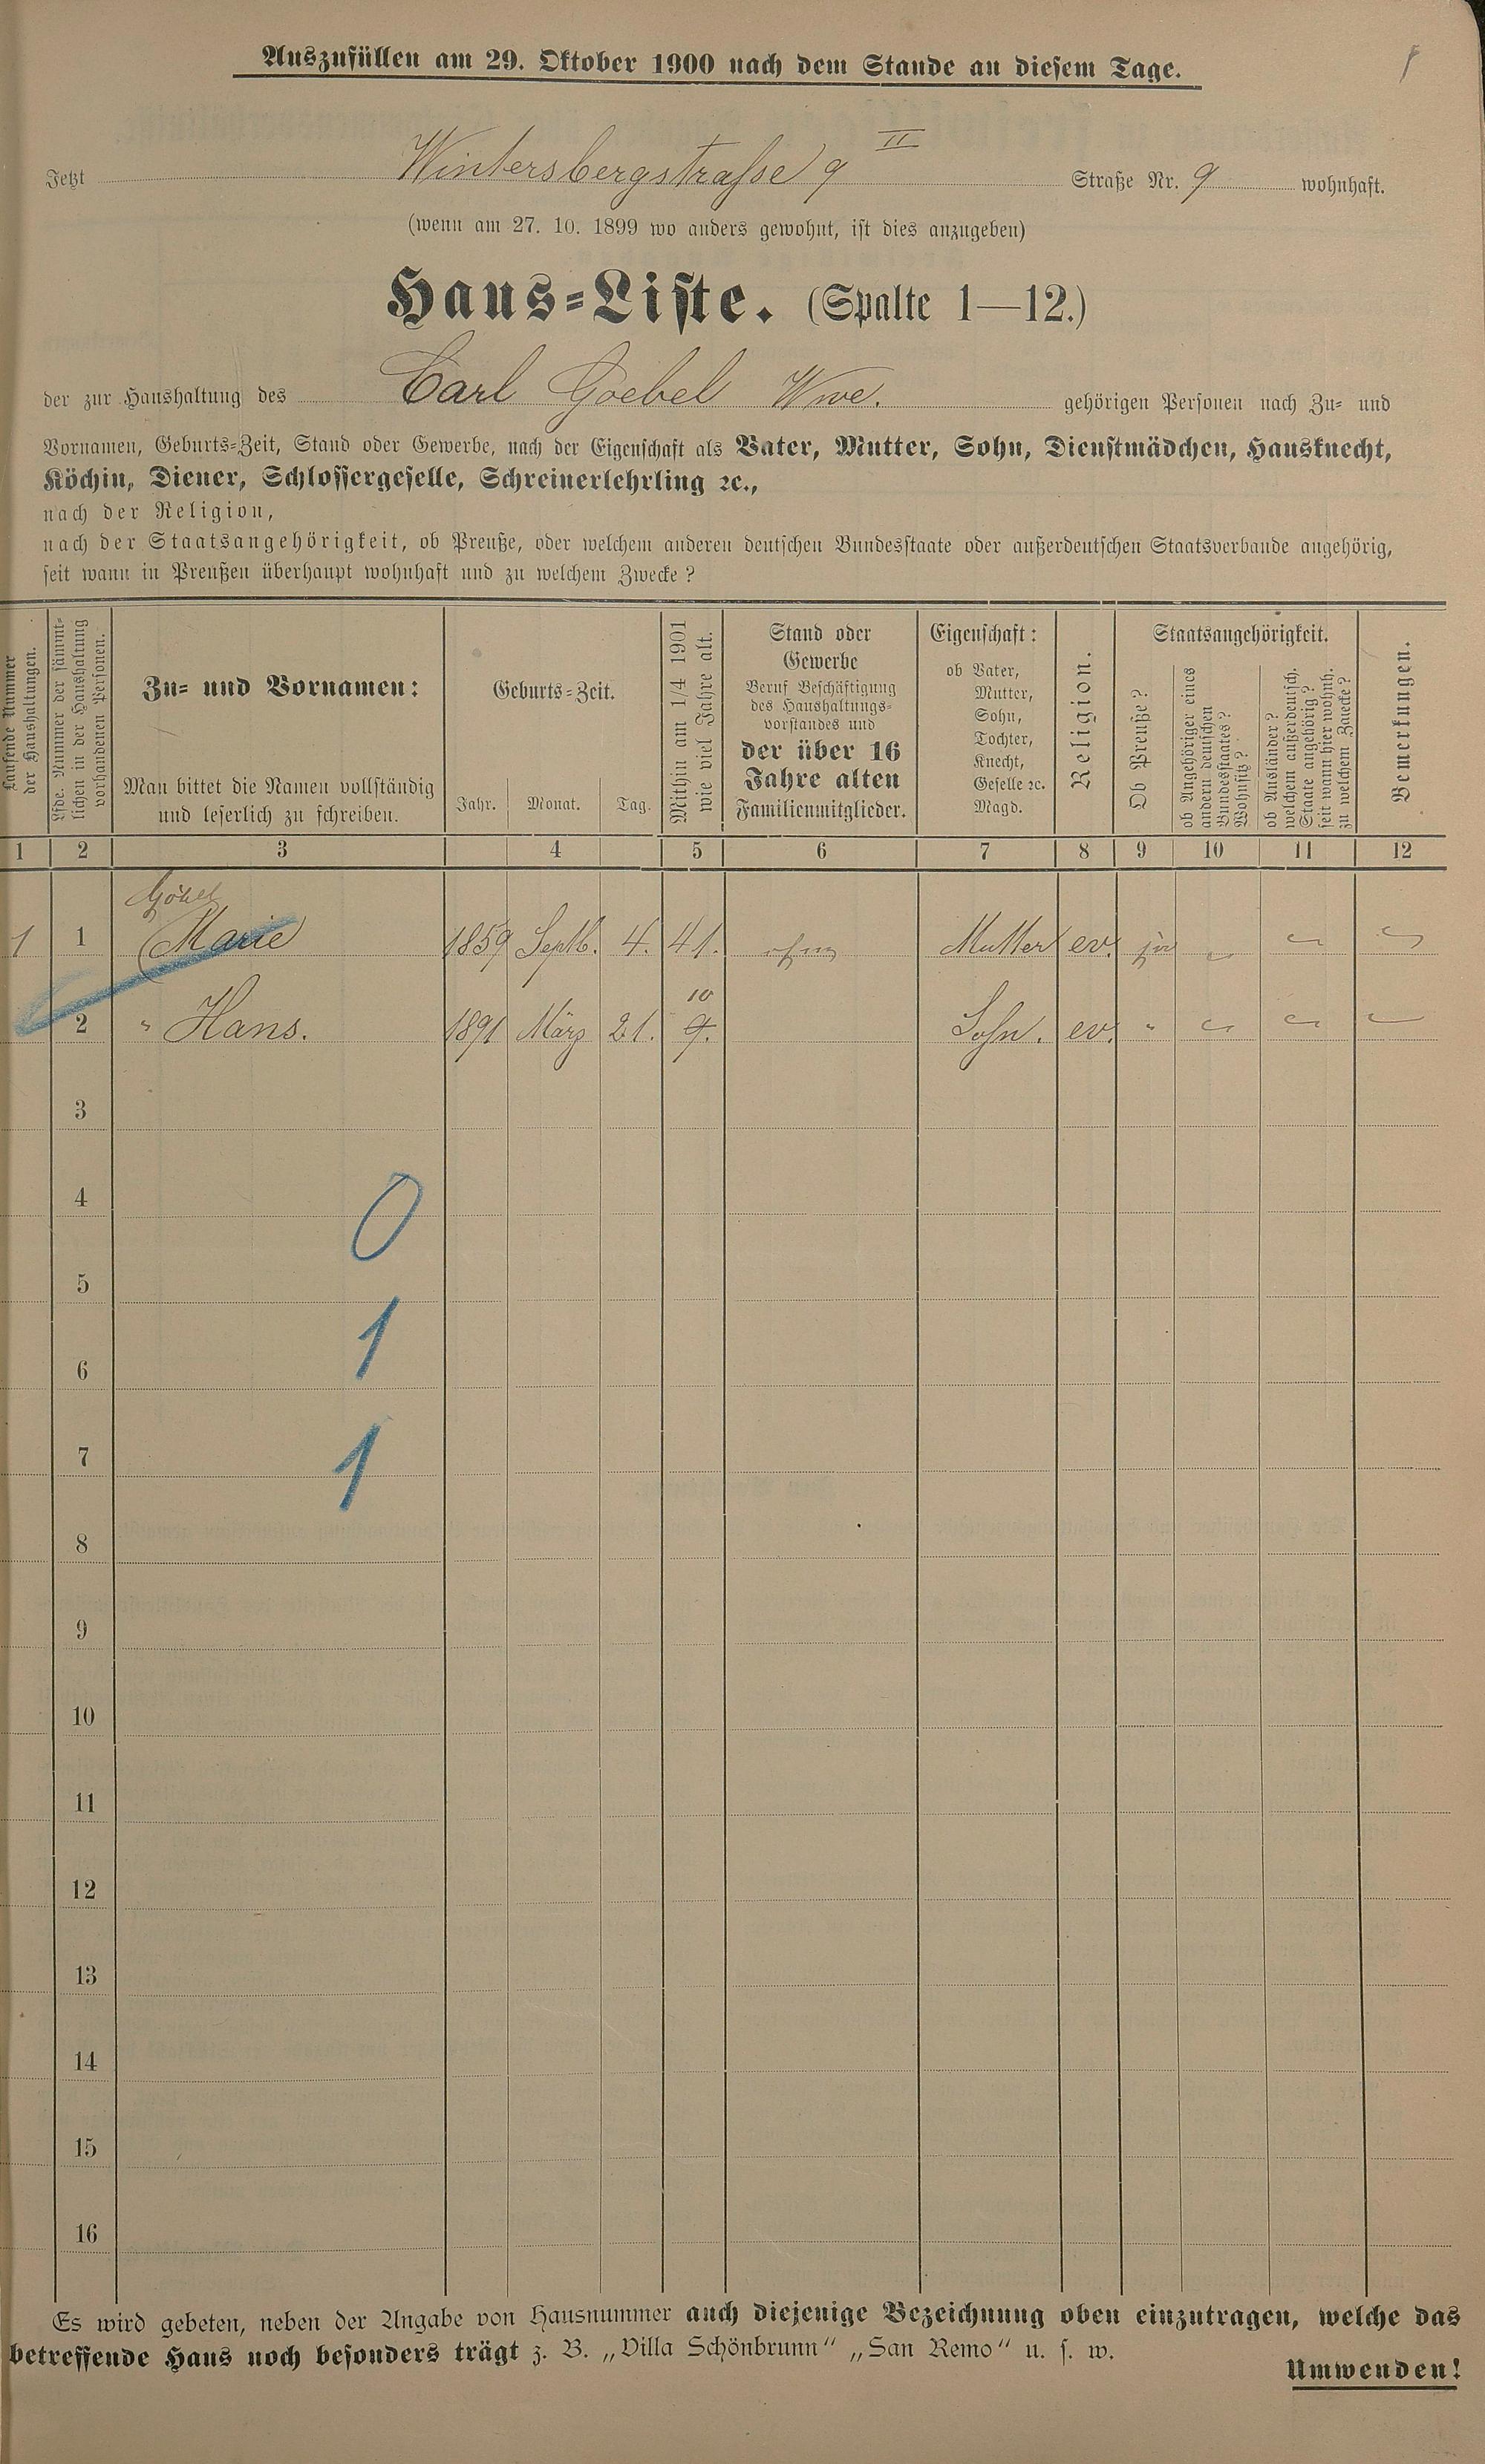 Auszufüllen am 29. Oktober 1900 nach dem Stande an diesem Tage.
II
Jetzt Wintersbergstraſse 9 Straße Nr. 9 wohnhaft.
(wenn am 27. 10. 1899 wo anders gewohnt, ist dies anzugeben)
Haus=Liste. (Spalte 1—12.)
der zur Haushaltung des Carl Goebel Wwe. gehörigen Personen nach Zu= und
Vornamen, Geburts=Zeit, Stand oder Gewerbe, nach der Eigenschaft als Vater, Mutter, Sohn, Dienstmädchen, Hausknecht,
Köchin, Diener, Schlossergeselle, Schreinerlehrling ꝛc.,
nach der Religion,
nach der Staatsangehörigkeit, ob Preuße, oder welchem anderen deutschen Bundesstaate oder außerdeutschen Staatsverbande angehörig,
seit wann in Preußen überhaupt wohnhaft und zu welchem Zwecke?
Laufende Nummer
der Haushaltungen.
Lfde. Nummer der sämmt=
lichen in der Haushaltung
vorhandenen Personen.
Zu= und Vornamen:
Man bittet die Namen vollständig
und leserlich zu schreiben.
Geburts=Zeit.
Jahr. Monat. Tag.
Mithin am 1/4 1901
wie viel Jahre alt.
Stand oder
Gewerbe
Beruf Beschäftigung
des Haushaltungs=
vorstandes und
der über 16
Jahre alten
Familienmitglieder.
Eigenschaft:
ob Vater,
Mutter,
Sohn,
Tochter,
Knecht,
Geselle ꝛc.
Magd.
Religion.
Staatsangehörigkeit.
Ob Preuße?
ob Angehöriger eines
andern deutschen
Bundesstaates?
Wohnsitz?
ob Ausländer?
welchem außerdeutsch.
Staate angehörig?
seit wann hier wohnh.
zu welchem Zwecke?
Bemerkungen.
1 2 3 4 5 6 7 8 9 10 11 12
Göbel
1 1 Marie 1859 Septb. 4. 41. ohne Mutter ev. ja
10
2 " Hans. 1891 März 21. 9. Sohn. ev. "
3
4
0
5
1
6
7
1
8
9
10
11
12
13
14
15
16
Es wird gebeten, neben der Angabe von Hausnummer auch diejenige Bezeichnung oben einzutragen, welche das
betreffende Haus noch besonders trägt z. B. „Villa Schönbrunn" „San Remo" u. s. w.
Umwenden!